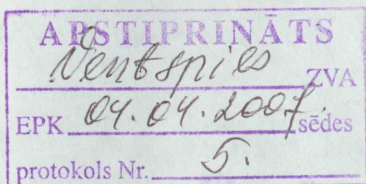 APSTIPRINĀTS
Ventspils ZVA
EPK 04.04.2007. sēdes
protokols Nr. 5.